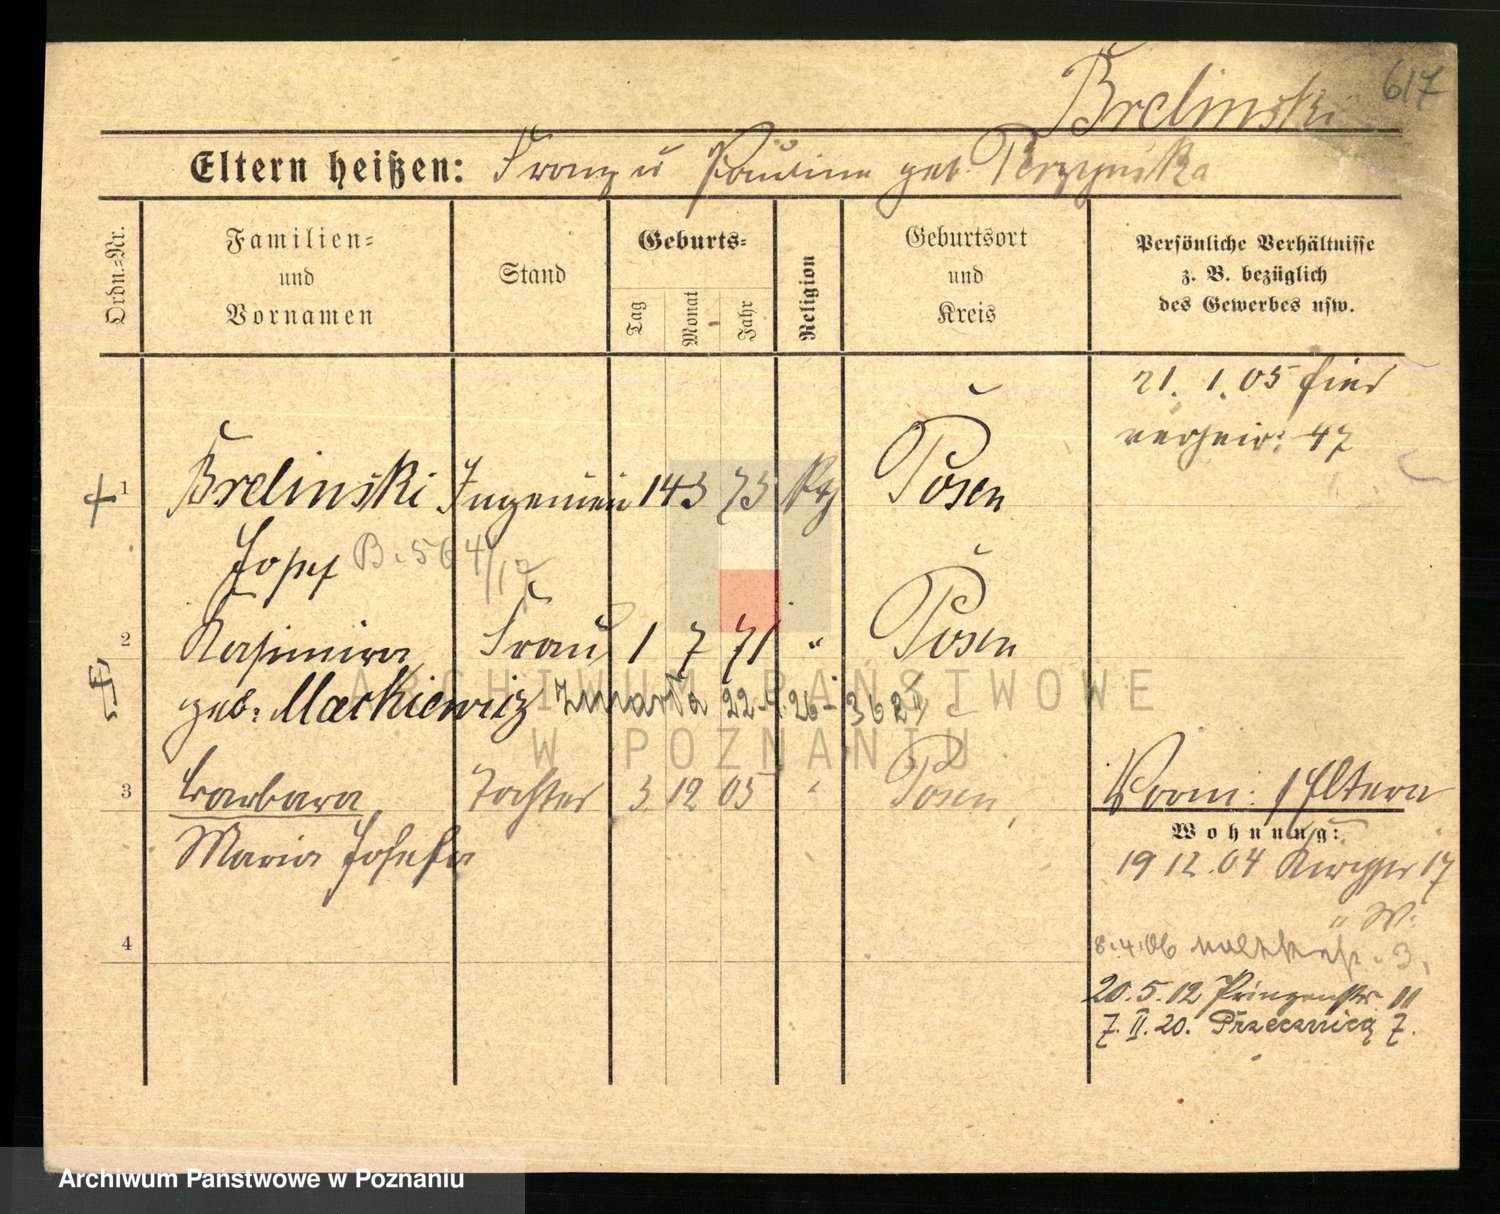 Brelinski 617
Eltern heißen: Franz u Pauline geb.
Ordn.-Nr.
Familien-
und
Vornamen
Stand
Geburts-
Tag
Monat
Jahr
Religion
Geburtsort
und
Kreis
Persönliche Verhältnisse
z. B. bezüglich
des Gewerbes usw.
21. 1. 05 hier
verheir: 47
1 Brelinski Ingenieur 14 3 73 Posen
Josef B. 564/17
2 Kasimira Frau 1 7 71 " Posen
geb. Mackiewicz zmarła 22-9.26-
3 Barbara Tochter 3 12 05 " Posen
Maria Josefa
Vorm: / Eltern
Wohnung:
19 12.04 17
" W.
4
8.4.06 3.
20.5.12 Prinzenstr.
7.II.20. Przecznica 7.
ARCHIWUM PAŃSTWOWE
W POZNANIU
Archiwum Państwowe w Poznaniu